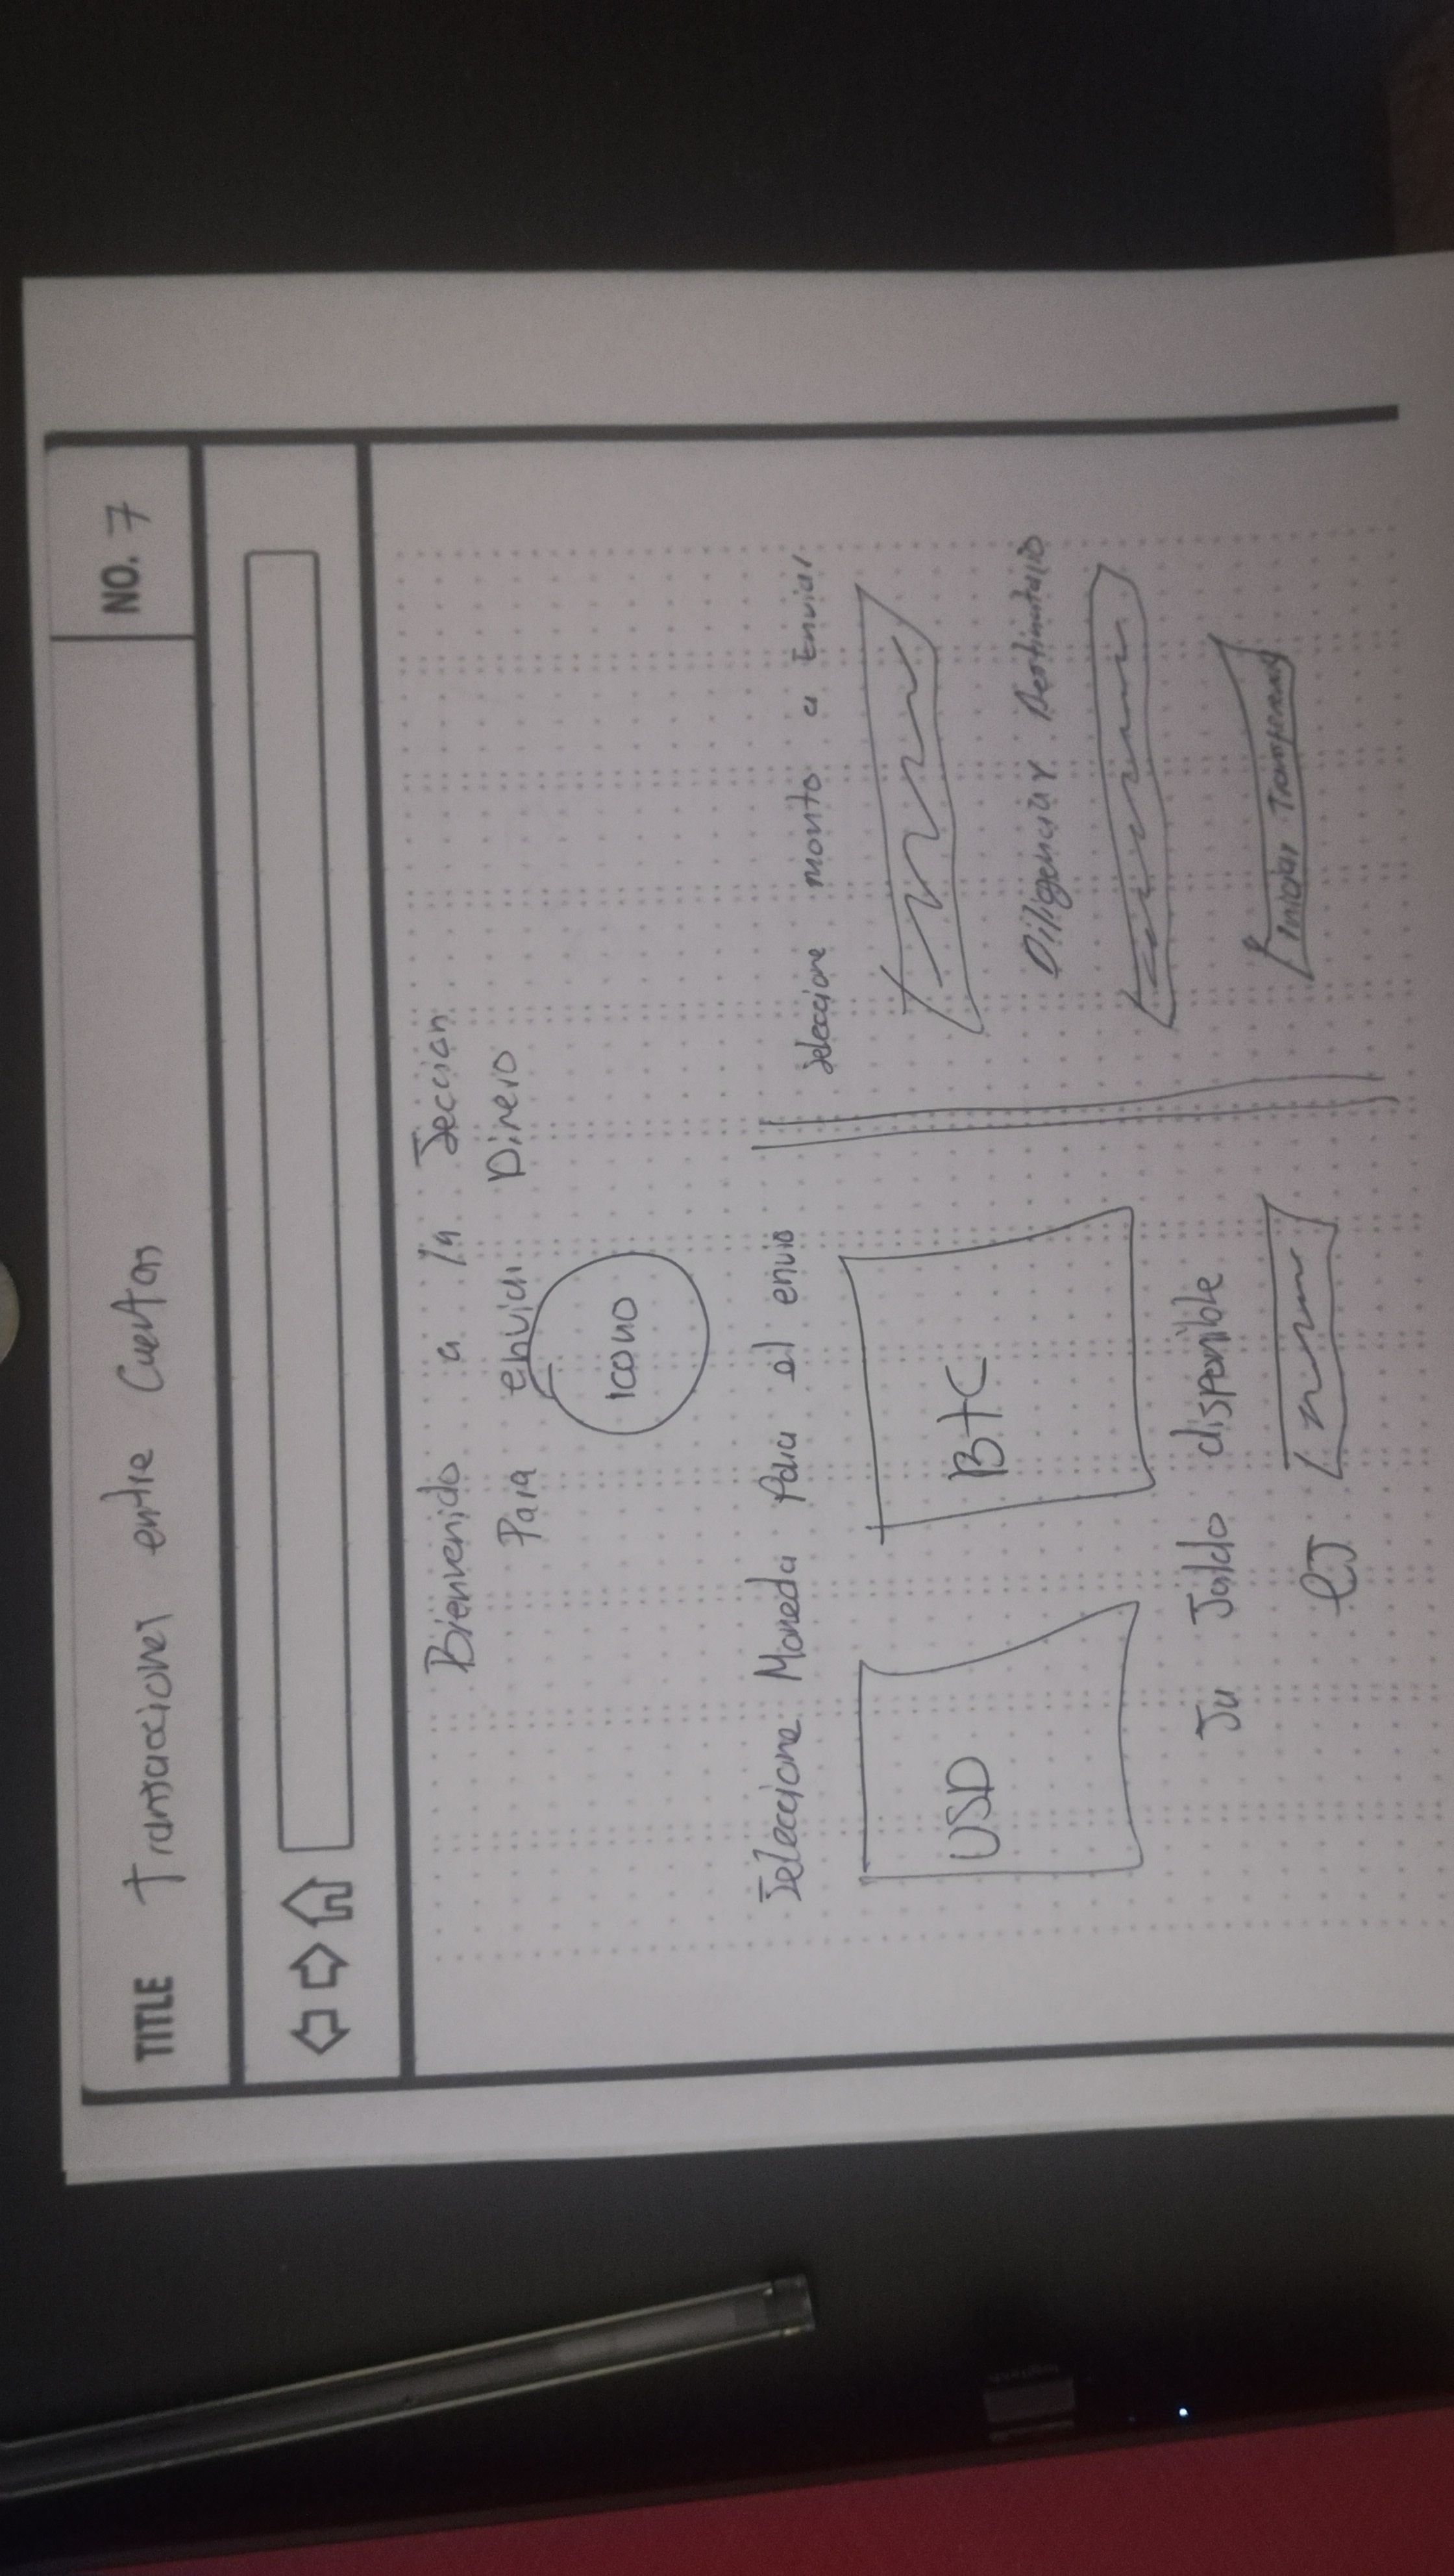 TITLE Transacciones entre Cuentas
NO. 7
Bienvenido a la Seccion
Para enviar Dinero
ICONO
Seleccione Moneda Para el envio
USD
BTC
Su Saldo disponible
es
Seleccione monto a Enviar
Diligenciar Destinatario
Iniciar